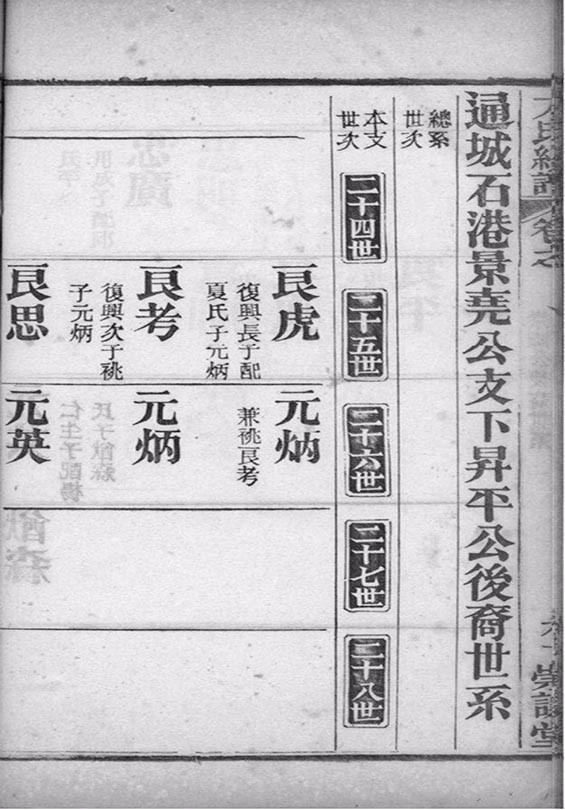 氏總譜
卷之
通城石港景堯公支下昇平公後裔世系
總系
世次
本支
世次
二十四世
二十五世
二十六世
二十七世
二十八世
艮虎
復興長子配
夏氏子元炳
艮考
復興次子祧
子元炳
艮思
元炳
兼祧艮考
元炳
元英